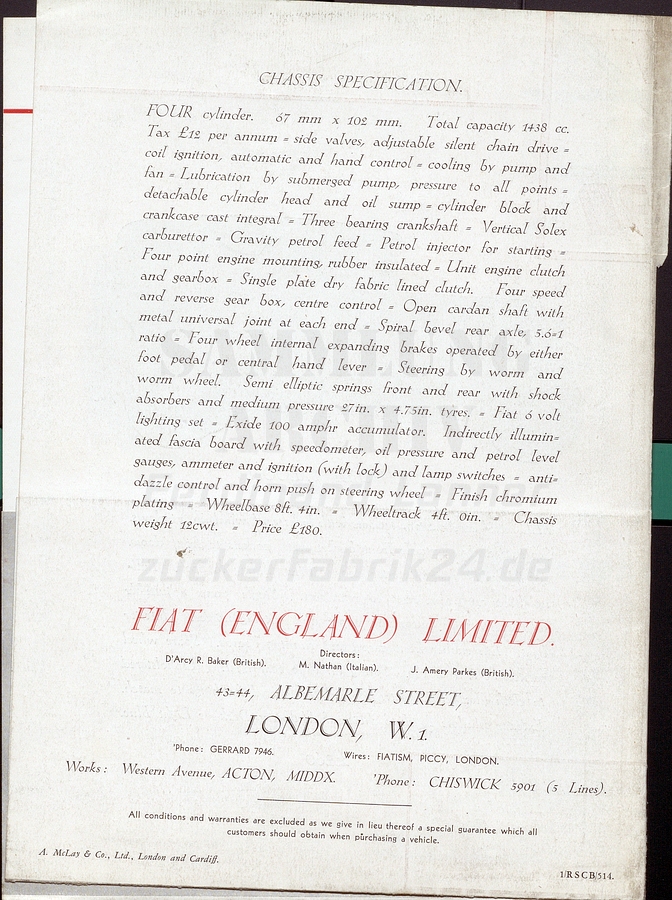 CHASSIS SPECIFICATION.
FOUR cylinder. 67 mm x 102 mm. Total capacity 1438 cc.
Tax £12 per annum = side valves, adjustable silent chain drive =
coil ignition, automatic and hand control = cooling by pump and
fan = Lubrication by submerged pump, pressure to all points =
detachable cylinder head and oil sump = cylinder block and
crankcase cast integral = Three bearing crankshaft = Vertical Solex
carburettor = Gravity petrol feed = Petrol injector for starting =
Four point engine mounting, rubber insulated = Unit engine clutch
and gearbox = Single plate dry fabric lined clutch. Four speed
and reverse gear box, centre control = Open cardan shaft with
metal universal joint at each end = Spiral bevel rear axle, 5.6=1
ratio = Four wheel internal expanding brakes operated by either
foot pedal or central hand lever = Steering by worm and
worm wheel. Semi elliptic springs front and rear with shock
absorbers and medium pressure 27in. x 4.75in. tyres. = Fiat 6 volt
lighting set = Exide 100 amphr accumulator. Indirectly illumin=
ated fascia board with speedometer, oil pressure and petrol level
gauges, ammeter and ignition (with lock) and lamp switches = anti=
dazzle control and horn push on steering wheel = Finish chromium
plating = Wheelbase 8ft. 4in. = Wheeltrack 4ft. 0in. = Chassis
weight 12cwt. = Price £180.
zuckerfabrik24.de
FIAT (ENGLAND) LIMITED.
Directors:
D'Arcy R. Baker (British). M. Nathan (Italian). J. Amery Parkes (British).
43=44, ALBEMARLE STREET,
LONDON, W.1.
'Phone: GERRARD 7946. Wires: FIATISM, PICCY, LONDON.
Works: Western Avenue, ACTON, MIDDX. 'Phone: CHISWICK 5901 (5 Lines).
All conditions and warranties are excluded as we give in lieu thereof a special guarantee which all
customers should obtain when purchasing a vehicle.
A. McLay & Co., Ltd., London and Cardiff.
1/RSCB/514.